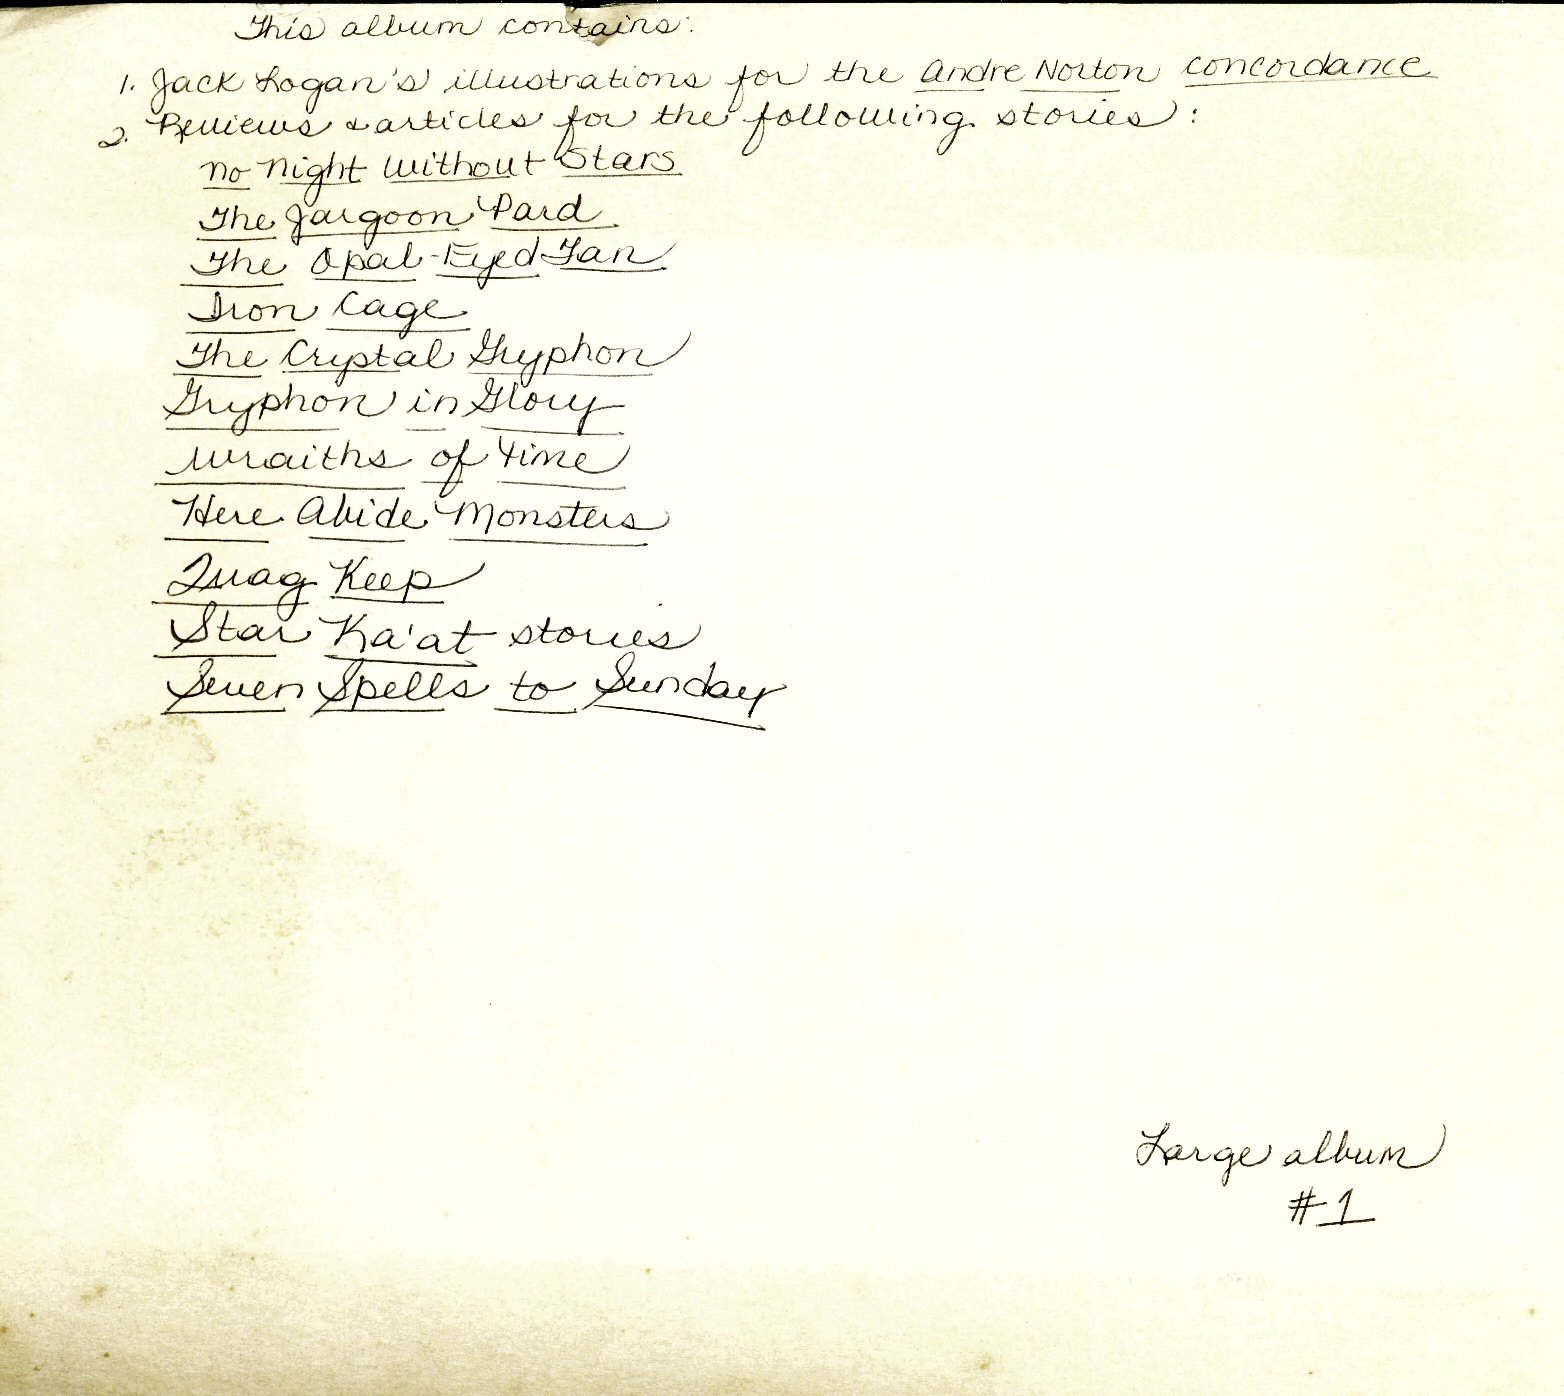 This album contains:
1. Jack Logan's illustrations for the Andre Norton Concordance
2. Reviews & articles for the following stories:
No Night Without Stars
The Jargoon Pard
The Opal-Eyed Fan
Iron Cage
The Crystal Gryphon
Gryphon in Glory
Wraiths of Time
Here Abide Monsters
Quag Keep
Star Ka'at stories
Seven Spells to Sunday
Large album
#1